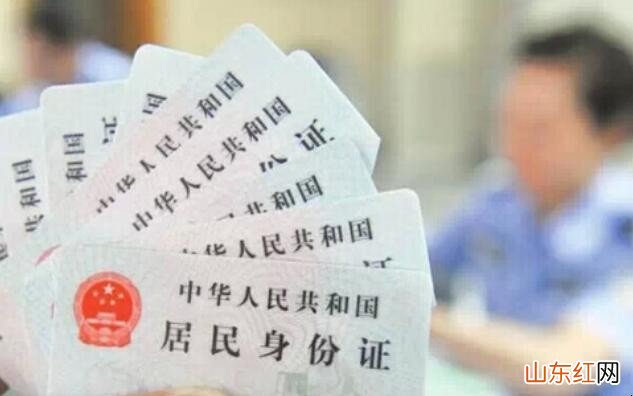 中华人民共和国
民
中华人民共和国
中华人民共和国
身份证
中华人民共和国
份证
中华人民共和国
居民身份证
山东红网